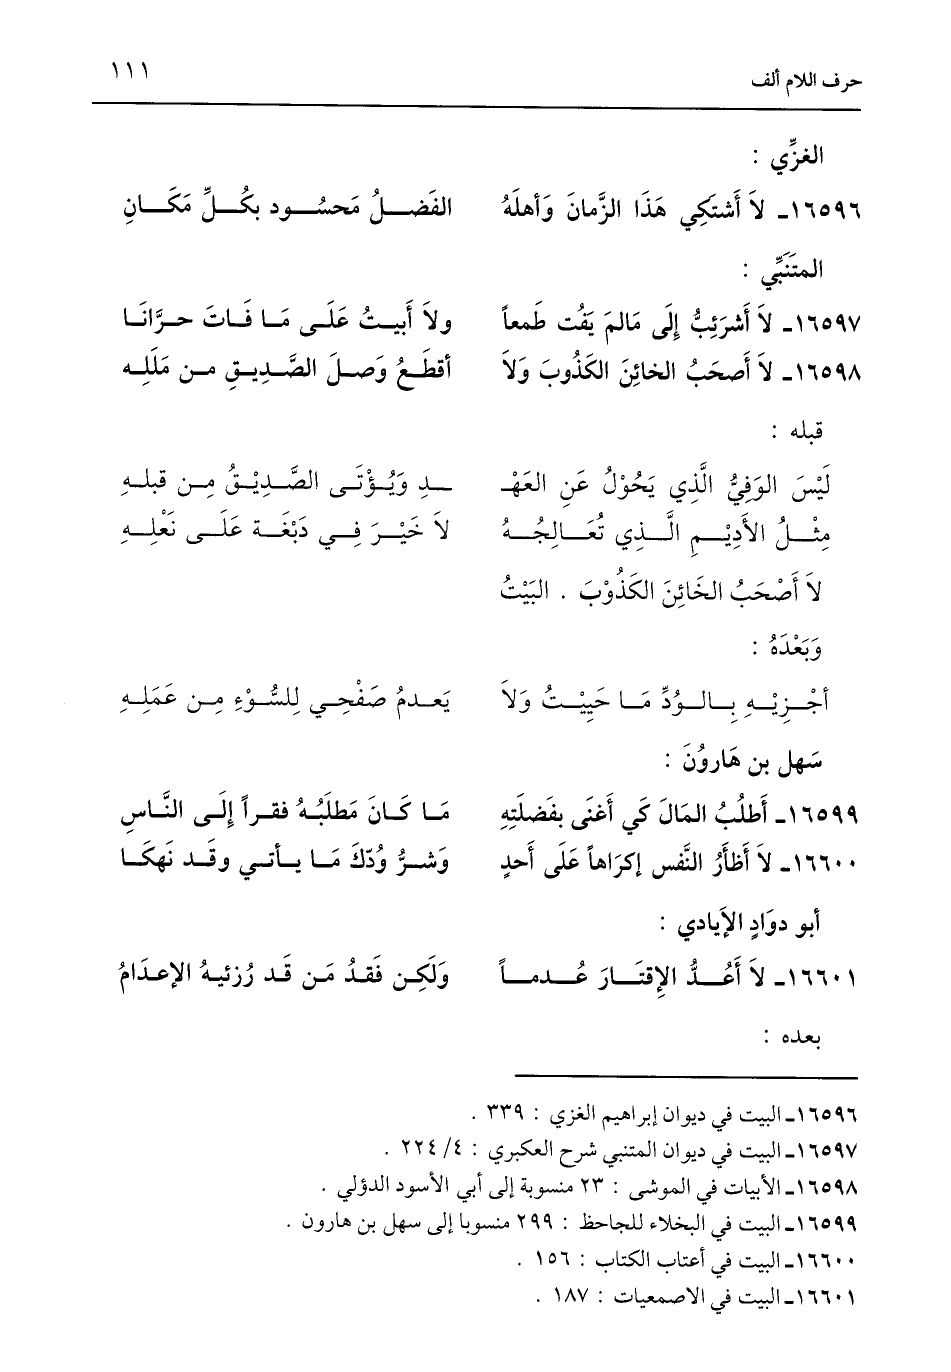 حرف اللام ألف ١١١
الغزِّي :
١٦٥٩٦ـ لاَ أَشتَكِي هَذَا الزَّمانَ وَأهلَهُ الفَضلُ مَحسُود بكُلِّ مَكَانِ
المتَنَبِّي :
١٦٥٩٧ـ لاَ أَشرَئِبُّ إلَى مَالمَ يَفُت طَمعاً ولاَ أَبيتُ عَلَى مَا فَاتَ حرَّانَا
١٦٥٩٨ـ لاَ أَصحَبُ الخائِنَ الكَذُوبَ وَلاَ أقطَعُ وَصلَ الصَّديقِ من مَلَلِه
قبله :
لَيْسَ الوَفِيُّ الَّذِي يَحُوْلُ عَنِ العَهْـ ـدِ وَيُؤْتَى الصَّدِيْقُ مِن قبلهِ
مِثْلُ الأَدِيْمِ الَّذِي تُعَالِجُهُ لاَ خَيْرَ فِي دَبْغَة عَلَى نَعْلِهِ
لاَ أَصْحَبُ الخَائِنَ الكَذُوْبَ . البَيْتُ
وَبَعْدَهُ :
أجْزِيْهِ بِالوُدِّ مَا حَيِيْتُ وَلاَ يَعدمُ صَفْحِي لِلسُّوْءِ مِن عَمَلِهِ
سَهل بن هَارُونَ :
١٦٥٩٩ـ أَطلُبُ المَالَ كَي أَغنَى بفَضلَتِهِ مَا كَانَ مَطلَبُهُ فقراً إلَى النَّاسِ
١٦٦٠٠ـ لاَ أَظأَرُ النَّفس إكرَاهاً عَلَى أَحدٍ وَشرُّ وُدّكَ مَا يأتي وقد نَهكَا
أبو دوَادٍ الإَيادي :
١٦٦٠١ـ لاَ أَعُدُّ الإِقتَارَ عُدماً وَلَكِن فَقدُ مَن قَد رُزئيهُ الإعدَامُ
بعده :
١٦٥٩٦ـ البيت في ديوان إبراهيم الغزي : ٣٣٩ .
١٦٥٩٧ـ البيت في ديوان المتنبي شرح العكبري : ٤/ ٢٢٤ .
١٦٥٩٨ـ الأبيات في الموشى : ٢٣ منسوبة إلى أبي الأسود الدؤلي .
١٦٥٩٩ـ البيت في البخلاء للجاحظ : ٢٩٩ منسوبا إلى سهل بن هارون .
١٦٦٠٠ـ البيت في أعتاب الكتاب : ١٥٦ .
١٦٦٠١ـ البيت في الاصمعيات : ١٨٧ .